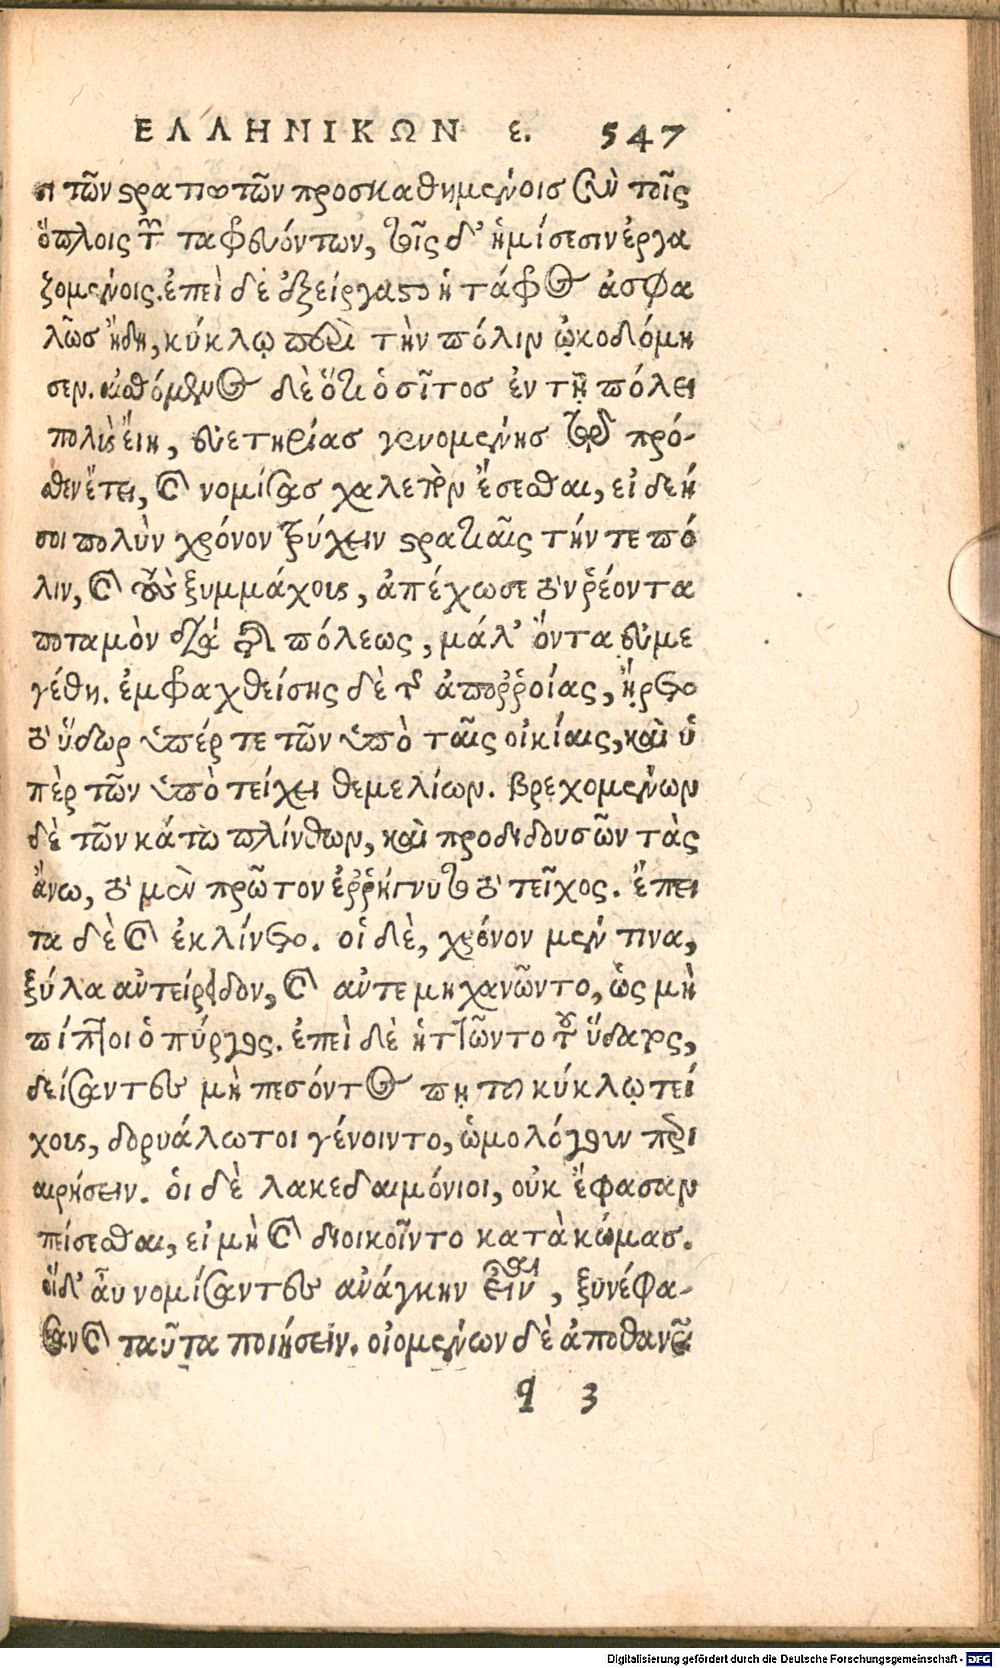 ΕΛΛΗΝΙΚΩΝ ε. 547
σι τῶν στρατιωτῶν προσκαθημένοισ σὺν τοῖς
ὅπλοις τῶν ταφρευόντων, τοῖς δ' ἡμίσεσιν ἐργα
ζομένοις. ἐπεὶ δὲ ἐξείργαστο ἡ τάφρος ἀσφα
λῶσ ἤδη, κύκλῳ περὶ τὴν πόλιν ᾠκοδόμη
σεν. αἰσθόμενος δὲ ὅτι ὁ σῖτοσ ἐν τῇ πόλει
πολὺς ἔιη, εὐετηρίασ γενομένησ τοῦ πρό-
σθεν ἔτει, καὶ νομίσασ χαλεπὸν ἔσεσθαι, εἰ δεή
σοι πολὺν χρόνον τρύχειν στρατιαῖς τήν τε πό
λιν, καὶ τοὺς ξυμμάχους, ἀπέχωσε τὸν ῥέοντα
ποταμὸν διὰ τῆς πόλεως, μάλ' ὄντα εὐμε
γέθη. ἐμφραχθείσης δὲ τῆς ἀποῤῥοίας, ᾔρετο
τὸ ὕδωρ ὑπέρ τε τῶν ὑπὸ ταῖς οἰκίαις, καὶ ὑ
πὲρ τῶν ὑπὸ τείχει θεμελίων. βρεχομένων
δὲ τῶν κάτω πλίνθων, καὶ προδιδουσῶν τὰς
ἄνω, τὸ μὲν πρῶτον ἐῤῥήγνυτο τὸ τεῖχος. ἔπει
τα δὲ καὶ ἐκλίνετο. οἱ δὲ, χρόνον μέν τινα,
ξύλα ἀντείρειδον, καὶ αὐτεμηχανῶντο, ὡς μὴ
πίπτοι ὁ πύργος. ἐπεὶ δὲ ἡττῶντο τοῦ ὕδατος,
δείσαντες μὴ πεσόντος πῃ τοῦ κύκλῳ τεί
χους, δορυάλωτοι γένοιντο, ὡμολόγουν περι
αιρήσειν. ὁι δὲ λακεδαιμόνιοι, οὐκ ἔφασαν
πείσεσθαι, εἰ μὴ καὶ διοικοῖντο κατὰ κώμασ.
ὅιδ' ἆυ νομίσαντες ἀνάγκην εἶναι, ξυνέφα-
σαν καὶ ταῦτα ποιήσειν. οἰομένων δὲ ἀποθανεῖσ
q 3
Digitalisierung gefördert durch die Deutsche Forschungsgemeinschaft - DFG